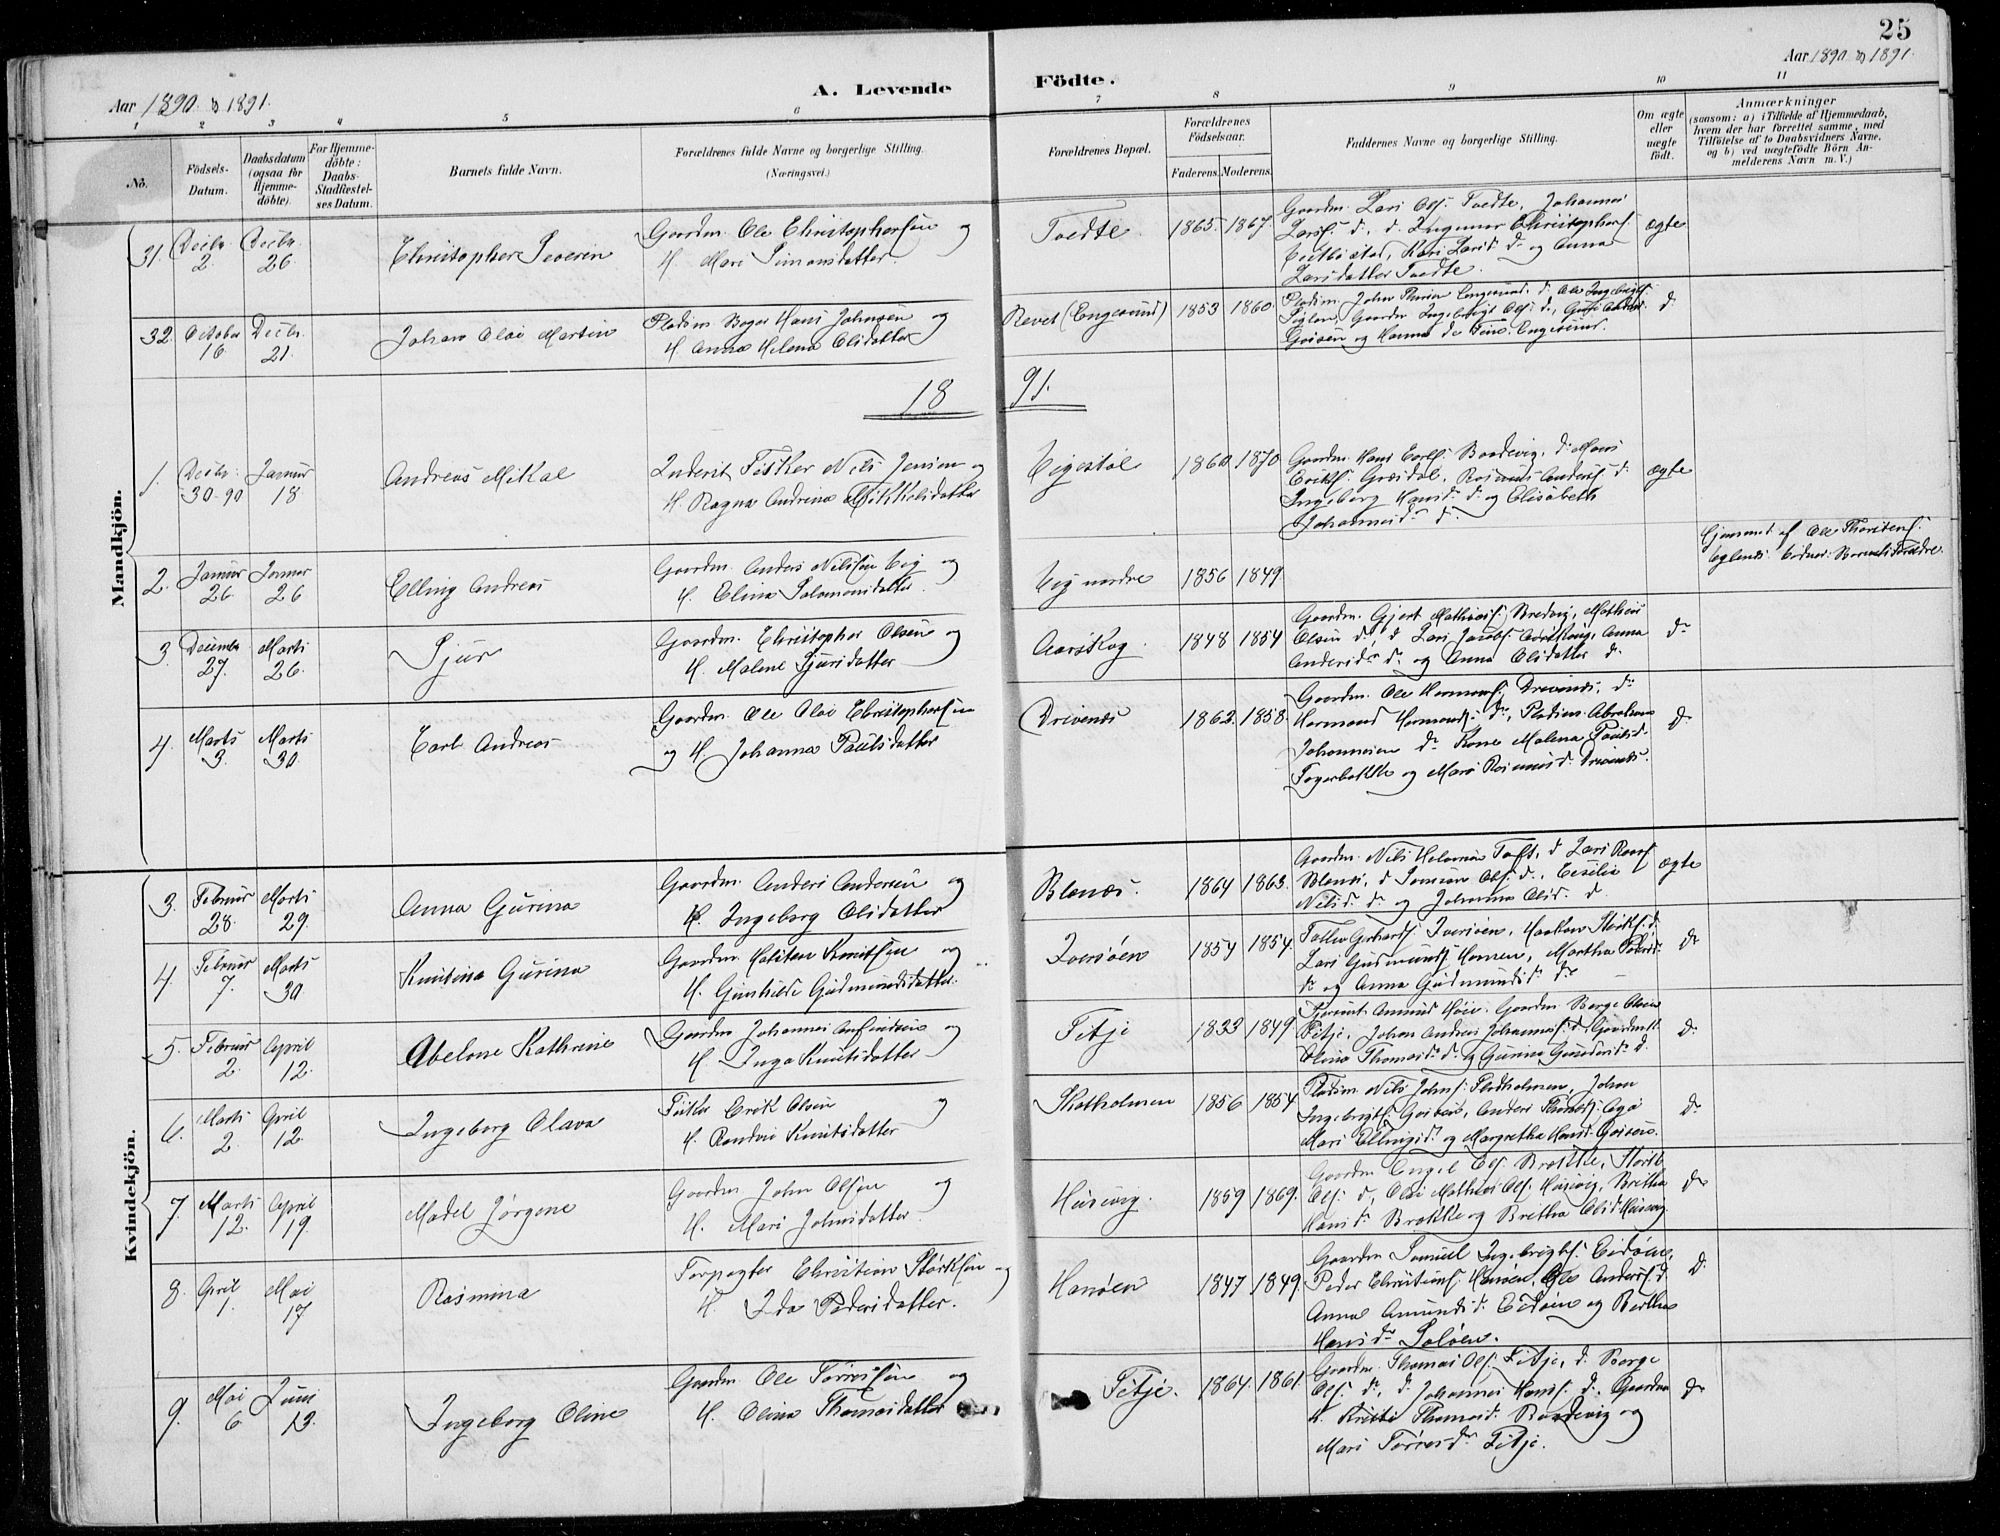 25
Aar 1890 & 1891.
Aar 1890 & 1891.
A. Levende Födte.
1 2 3 4 5 6 7 8 9 10 11
No.
Födsels-
Datum.
Daabsdatum
(ogsaa for
Hjemme-
döbte).
For Hjemme-
döbte:
Daabs-
Stadfæstel-
ses Datum.
Barnets fulde Navn.
Forældrenes fulde Navne og borgerlige Stilling.
(Næringsvei.)
Forældrenes Bopæl.
Forældrenes
Födselsaar.
Faderens. Moderens.
Faddernes Navne og borgerlige Stilling.
Om ægte
eller
uægte
födt.
Anmærkninger
(saasom: a) i Tilfælde af Hjemmedaab,
hvem der har forrettet samme, med
Tilföielse af to Daabsvidners Navne,
og b) ved uægtefödte Börn An-
melderens Navn m. V.)
Mandkjön.
31. Decbr. 2. Decbr. 26. Christopher Severin
Gaardm. Ole Christophersen og
H. Mari Simonsdatter.
Tvedte. 1865. 1867.
Gaardm. Lars Ols. Tvedte, Johannes
Larsf. d., d. Ingemar Christophersf.
Kari Larsd. d. og Anna
Larsdatter Tvedte.
ægte
32. October 16. Decbr. 21. Johan Olai Martin
Pladsm. Bager Hans Johnsen og
H. Anna Helena Olsdatter
Revet (Engesund) 1853 1860
og Hanna Engesund.
d
18 91.
1. Decbr. 30-90 Januar 18 Andreas Mikal
Inderst Fisker Nils Jensen og
H. Ragna Andrina Mikkelsdatter
Eigestøl 1860 1870
Gaardm. Hans Carls. Vaadevig, d. Mons
Rasmus Andersf. d.
Ingeborg Hansd. d. og Elisabeth
Johannesd. d.
ægte
2. Januar 26 Januar 26 Elling Andreas
Gaardm. Anders Nilssen Eig og
H. Elina Salomonsdatter.
Eig nordre 1856 1849
Hjemmed. af Ole Thorstens.
Barnets Forældre.
3. December 27. Marts 26. Sjur
Gaardm. Christopher Olsen og
H. Malene Sjursdatter
Aarskog. 1848 1854
Gaardm. Gjert Mathiasf. Bredvig, Mathias
Olsen d., d. Lars Jacobs. Aarskog, Anna
Andersd. d. og Anna Olsdatter d.
d.
4. Marts 3. Marts 30. Carl Andreas
Gaardm. Ole Olai Christophersen
og H. Johanna Paulsdatter
Drivenes 1862. 1858.
Gaardm. Ole Hermansf. Drivenes, d.
Hermand Hermands. d., Pladsm. Abraham
Johannesen d. Kone Malena Paulsd.
Fagerbakke og Mari Rasmusd. Drivenes.
d
Kvindekjön.
3. Februar 28. Marts 29. Anna Gurina
Gaardm. Anders Andersen og
H. Ingeborg Olsdatter
Blenes. 1864 1863.
Gaardm. Nils Toft, d. Lars
Blenes, d. Samson Ols. d., Cesilia
Nilsd. d. og Johanna Olsd. d.
ægte
4. Februar 7 Marts 30 Knutina Gurina
Gaardm. Halsten Knutsen og
H. Gunhilde Gudmundsdatter.
Iversöen 1854 1854.
Iversöen,
Lars Gudmunds. Martha Pedersd.
d. og Anna Gudmundsd. d.
d
5. Februar 2. April 12. Abelone Kathrine
Gaardm. Johannes og
H. Inga Knutsdatter
Fitje 1833 1849
Amund Gaardm. Børge Olsen
Fitje, Johan Andreas Johannesf. d., Gaardm. H.
Olina Thomasd. d. og Gurina d.
d.
6. Marts 2 April 12. Ingeborg Olava
Fisker Erik Olsen og
H. Randvei Knutsdatter
Skotholmen 1856 1854
Pladsm. Nils Johns. Johan
Ingebrigts. Anders
Mari Ellingsd. og Margretha Hansd.
d.
7. Marts 12. April 19 Madel Jørgene
Gaardm. John Olsen og
H. Mari Johnsdatter
Husevig. 1859 1869.
Gaardm. Engel Ols. Brakke, Størk
Ols. d., Olai Mathias Ols. Husevig, Bretha
Hansd. Brakke og Bretha Olsd. Husevig
d
8. April 1. Mai 17 Rasmina
Forpagter Christian Størksen og
H. Ida Pedersdatter.
Hansöen 1847 1849.
Gaardm. Samuel Ingebrights. Eidöen,
Peder Christians. Hansöen, Ole Anders. d.
Anna Amundsd. Eidöen og Bertha
Hansd. Selöen.
d.
9. Mai 6 Juni 13. Ingeborg Oline
Gaardm. Ole Torresen og
H. Olina Thomasdatter
Fitje. 1864. 1861
Gaardm. Thomas Ols. Fitje, d. Børge
Ols. d., d. Johannes Hansf. d. Gaardm.
H. Kristi Thomasd. Vaadevig og
Mari Torresd. Fitje.
d